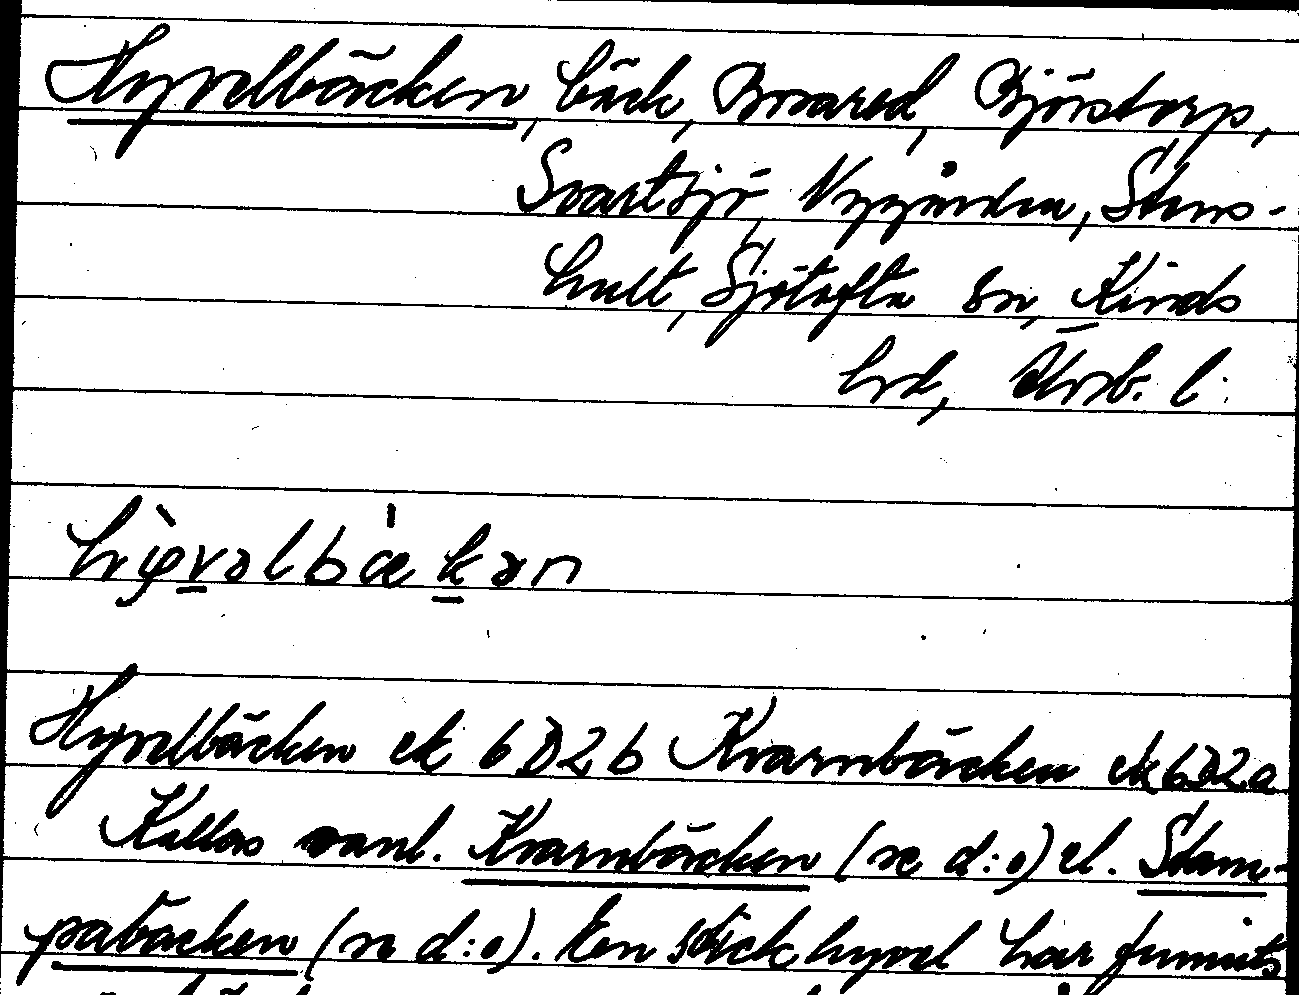 Hyvelbäcken, bäck, Boared, Björstorp,
Svartsjö, Nygården, Stens-
hult, Sjötofta sn, Kinds
hrd, Älvsb. l.
Hyvelbäcken ek 6D2b Kvarnbäcken ek 6D2a
Kallas vanl. Kvarnbäcken (se d:o) el. Stam-
pabäcken (se d:o). En stickhyvel har funnits